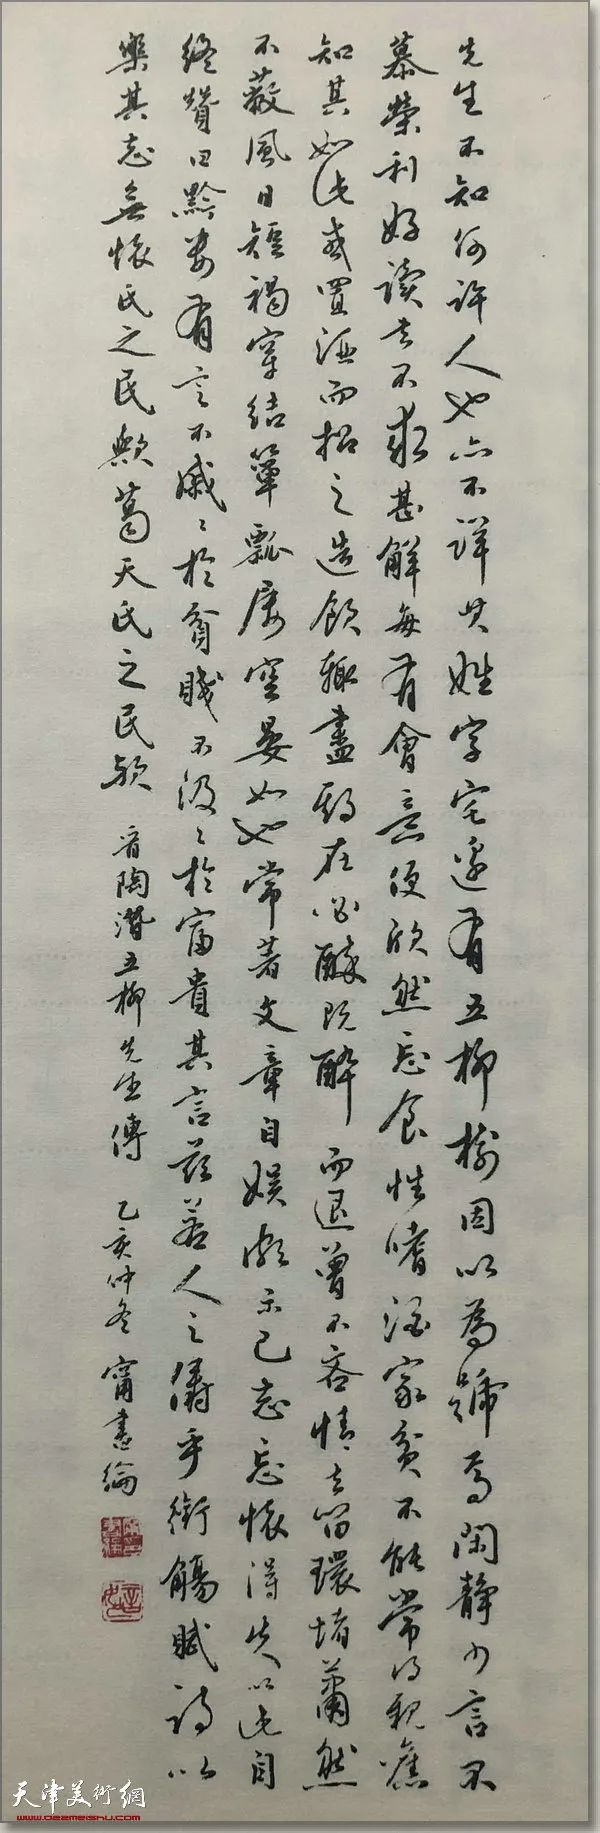 先生不知何许人也亦不详其姓字宅边有五柳树因以为號焉闲静少言不
慕荣利好读书不求甚解每有會意便欣然忘食性嗜酒家贫不能常得親舊
知其如此或置酒而招之造飲輒盡期在必醉既醉而退曾不吝情去留環堵蕭然
不蔽風日短褐穿结簞瓢屡空晏如也常著文章自娱頗示己志忘懷得失以此自
终贊曰黔婁有言不戚戚於貧賤不汲汲於富貴其言兹若人之儔乎銜觴賦诗以
樂其志無懷氏之民歟葛天氏之民歟 晋陶潛五柳先生傳 乙亥仲冬 甯書綸
天津美術網
www.022meishu.com